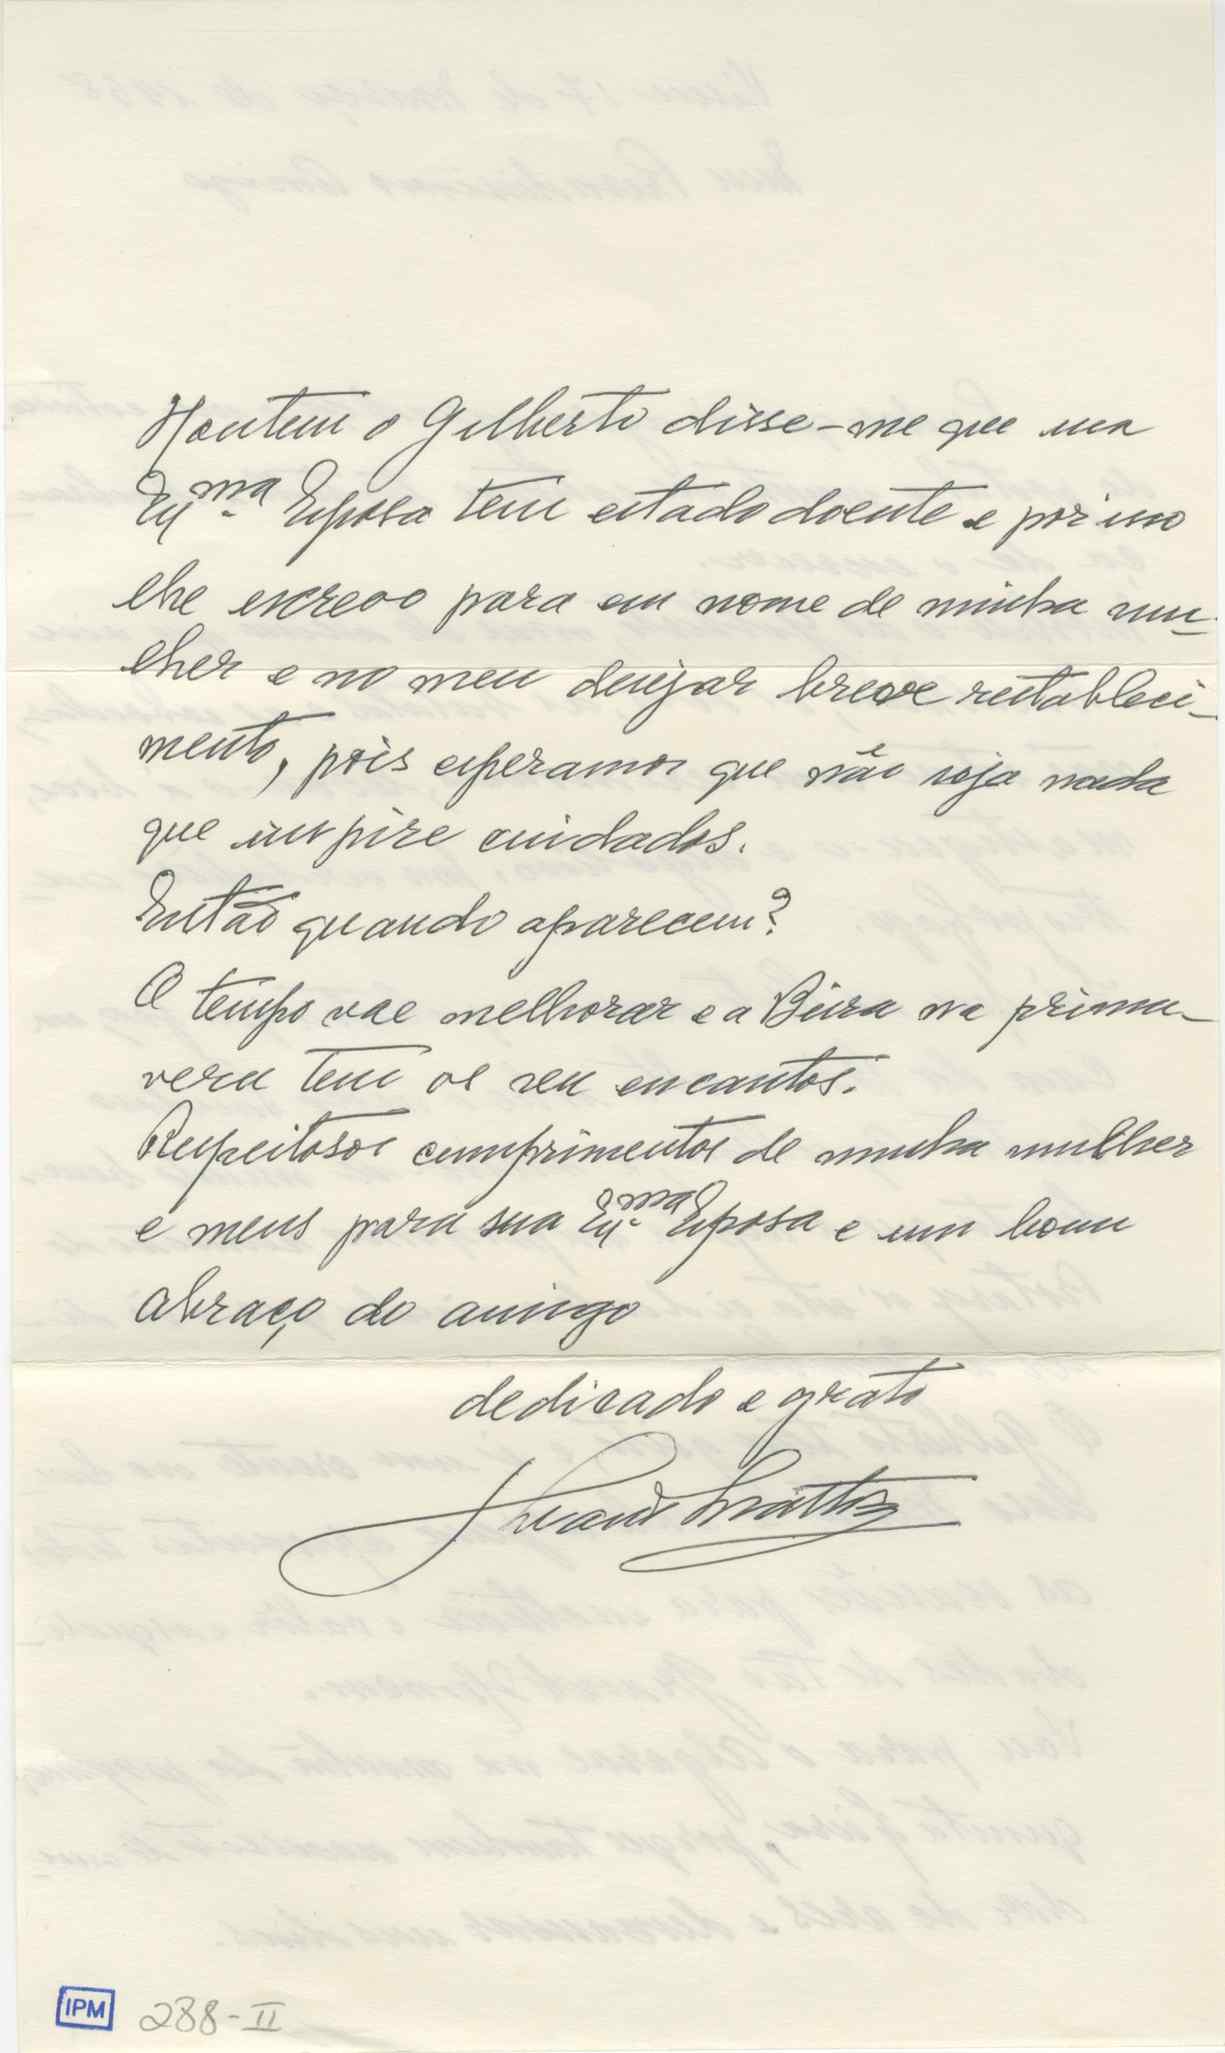 Hontem o Gilberto disse-me que sua
Exma. Esposa tem estado doente e por isso
lhe escrevo para em nome de minha mu-
lher e no meu desejar breve restableci-
mento, pois esperamos que não seja nada
que inspire cuidados.
Então quando aparecem?
O tempo vae melhorar e a Beira na prima-
vera tem os seu encantos.
Respeitosos cumprimentos de minha mulher
e meus para sua Exma. Esposa e um bom
abraço do amigo
dedicado e grato
Mattos
IPM 288-II